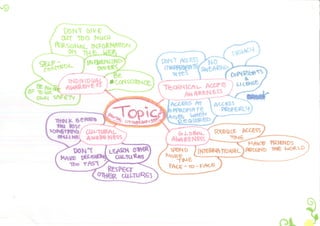 DON'T GIVE
OUT TOO MUCH
PERSONAL INFORMATION
ON THE WEB
SELF-
CONTROL
INFLUENCING
OTHERS
BE
#CONSCIENCE
INDIVIDUAL
AWARENESS
OWN SAFETY
DON'T ACCESS
SITES
NO
LEGALLY
COPYRIGHTS
&
LICENSE
TECHNICAL ACCESS
AWARENESS
ACCESS AT
APPROPRIATE
WHEN
REQUIRED
ACCESS
PROPERLY
Topic
DIGITAL CITIZENSHIP
THINK BEFORE
YOU POST
SOMETHING
ONLINE
CULTURAL
AWARENESS
DON'T
MAKE DECISIONS
TOO FAST
LEARN OTHER
CULTURES
RESPECT
OTHER CULTURES
GLOBAL
AWARENESS
SPEND
MORE
TIME
FACE-TO-FACE
INTERNATIONAL
ACCESS
MAKE FRIENDS
AROUND THE WORLD